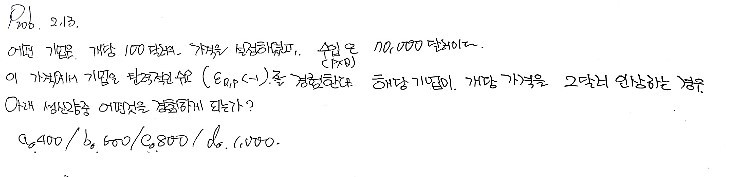 Prob. 2.13.
어떤 기업은 개당 100달러의 가격을 설정하였고, 수입은 70,000달러이다.
(P×Q)
이 가격에서 기업은 탄력적인 수요 (εQ,P<-1)를 경험한다 해당 기업이 개당 가격을 2달러 인상하는 경우
아래 생산량중 어떤것을 경험하게 되는가?
a. 400 / b. 600 / c. 800 / d. 1,000.